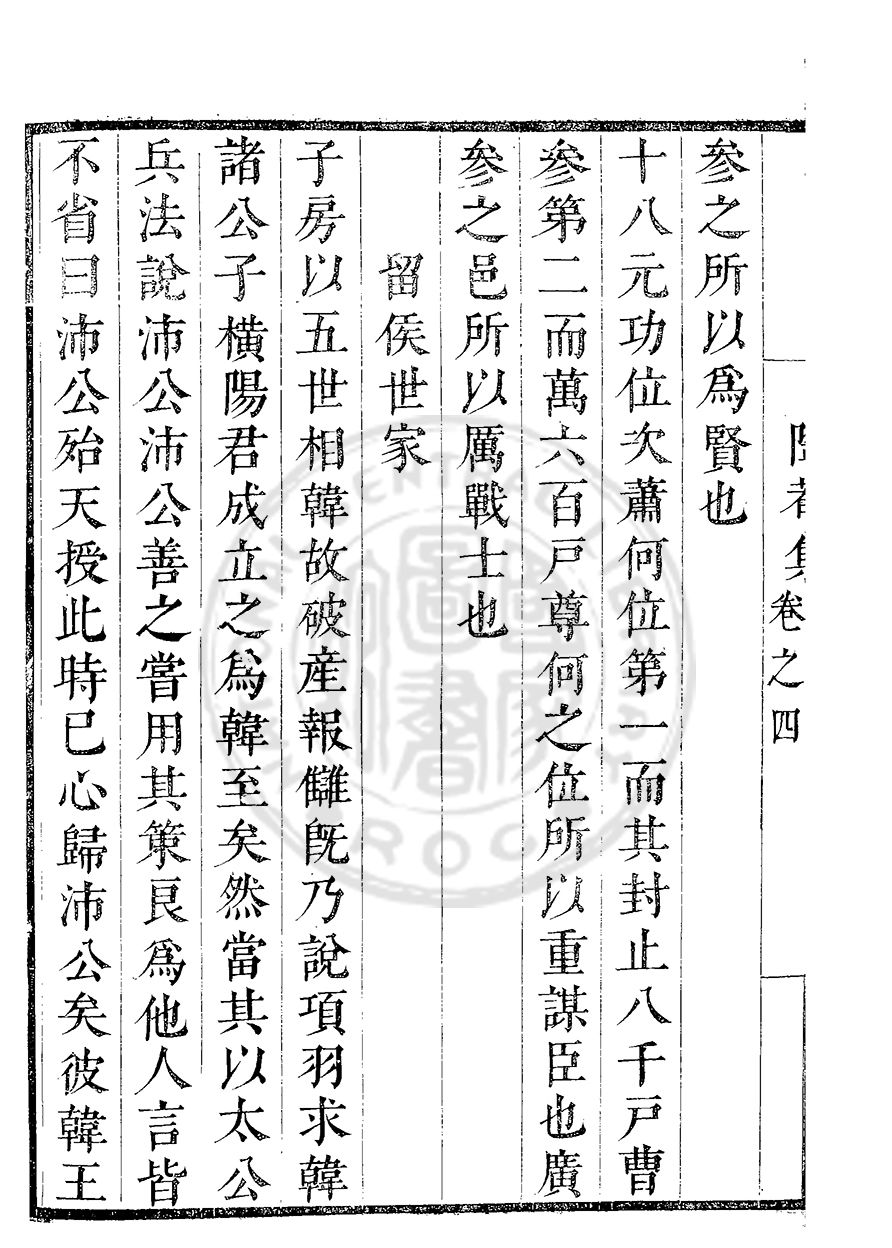 卷之四
參之所以爲賢也
十八元功位次蕭何位第一而其封止八千戸曹
參第二而萬六百戸尊何之位所以重謀臣也廣
參之邑所以厲戰士也
留侯世家
子房以五世相韓故破産報讎旣乃說項羽求韓
諸公子橫陽君成立之爲韓至矣然當其以太公
兵法說沛公沛公善之嘗用其策良爲他人言皆
不省曰沛公殆天授此時已心歸沛公矣彼韓王